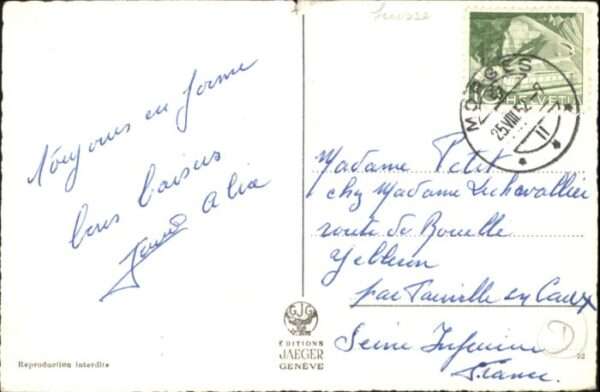 Suisse
HELVETIA
MORGES
25.VIII.52-2
11
toujours en forme
bons baisers
Madame Petit
chez Madame Lechevallier
route de Bouelle
par Fauville en Caux
Seine Inférieure
France
GJG
EDITIONS
JAEGER
GENÈVE
Reproduction interdite